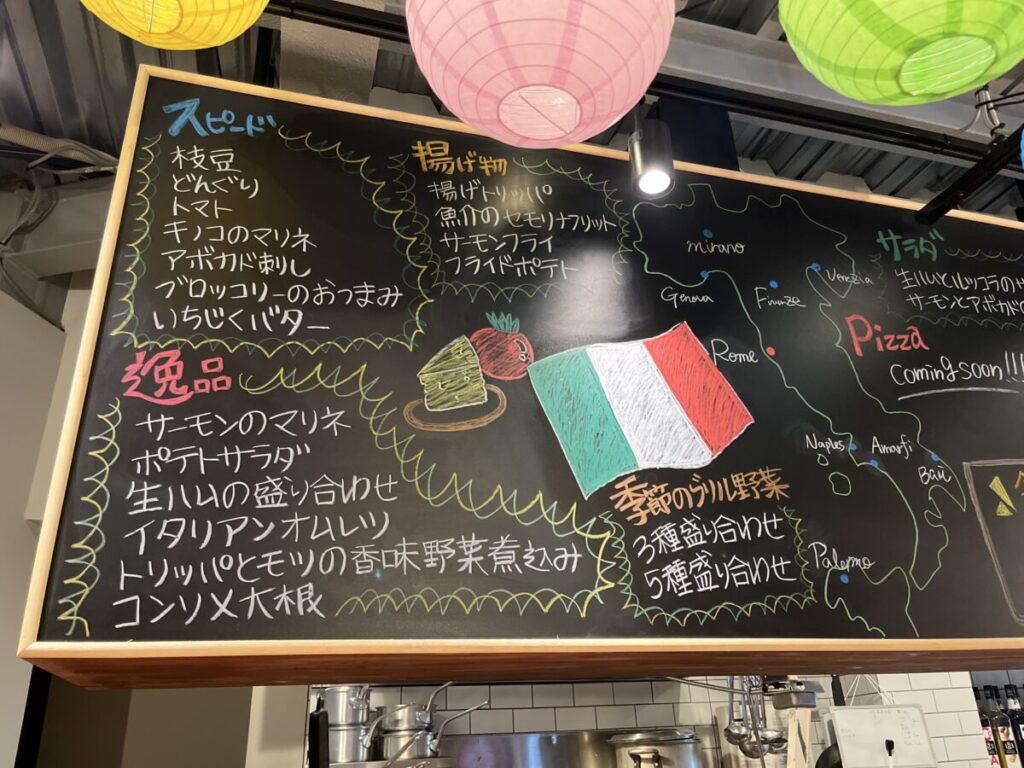 スピード
枝豆
どんぐり
トマト
キノコのマリネ
アボカド刺し
ブロッコリーのおつまみ
いちじくバター
逸品
サーモンのマリネ
ポテトサラダ
生ハムの盛り合わせ
イタリアンオムレツ
トリッパとモツの香味野菜煮込み
コンソメ大根
揚げ物
揚げトリッパ
魚介のセモリナフリット
サーモンフライ
フライドポテト
季節のグリル野菜
3種盛り合わせ
5種盛り合わせ
mirano
Genova
Firenze
Venezia
Rome
Naples
Amarfi
Bari
Palermo
サラダ
生ハムとルッコラの
サーモンとアボカド
Pizza
Coming soon!!!